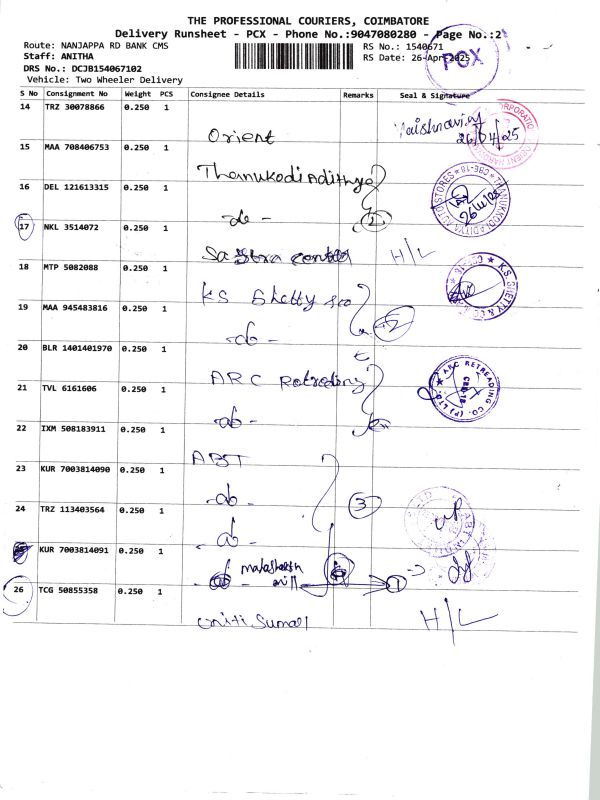 THE PROFESSIONAL COURIERS, COIMBATORE
Delivery Runsheet - PCX - Phone No.:9047080280 - Page No.:2
Route: NANJAPPA RD BANK CMS
RS No.: 1540671
Staff: ANITHA
RS Date: 26-Apr-2025
PCX
DRS No.: DCJB154067102
Vehicle: Two Wheeler Delivery
S No Consignment No Weight PCS Consignee Details Remarks Seal & Signature
14 TRZ 30078866 0.250 1 Orient
26/04/25
15 MAA 708406753 0.250 1 Thanukodi Adithya
16 DEL 121613315 0.250 1 -do- 2
17 NKL 3514072 0.250 1 H/L
18 MTP 5082088 0.250 1 KS Shetty
K.S. SHETTY & CO
19 MAA 945483816 0.250 1 -do- 2
20 BLR 1401401970 0.250 1 ARC Retreading
ARC RETREADING CO. (P) LTD.
21 TVL 6161606 0.250 1 -do-
22 IXM 508183911 0.250 1 ABT
23 KUR 7003814090 0.250 1 -do- 3
24 TRZ 113403564 0.250 1 -do-
KUR 7003814091 0.250 1 1
26 TCG 50855358 0.250 1 H/L